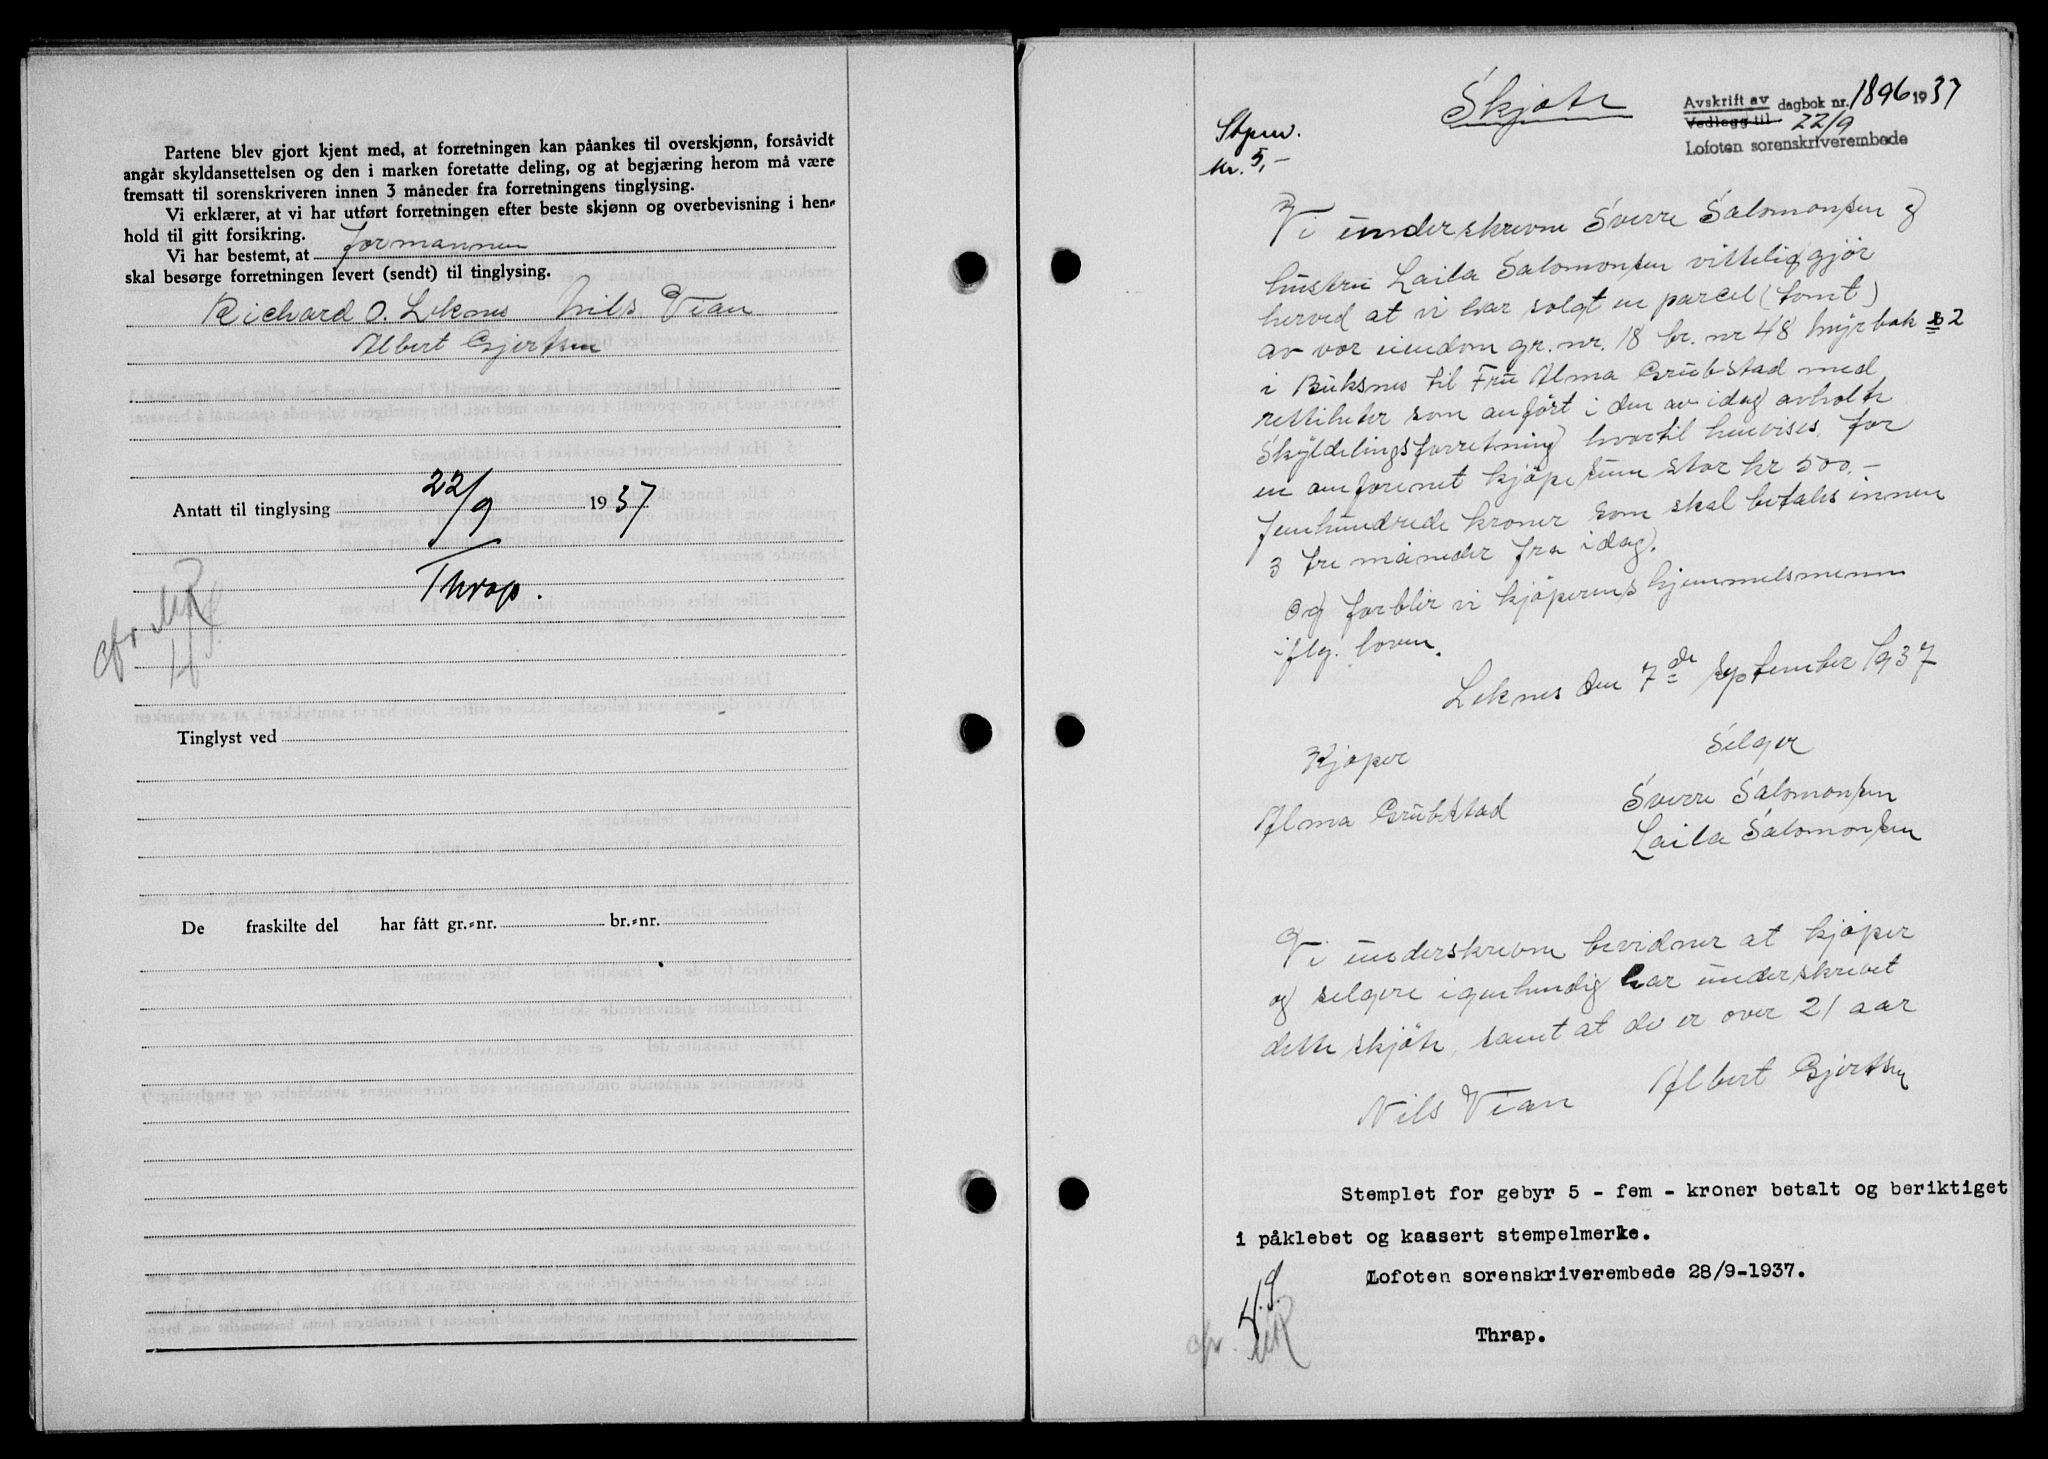 Partene blev gjort kjent med, at forretningen kan påankes til overskjønn, forsåvidt
angår skyldansettelsen og den i marken foretatte deling, og at begjæring herom må være
fremsatt til sorenskriveren innen 3 måneder fra forretningens tinglysing.
Vi erklærer, at vi har utført forretningen efter beste skjønn og overbevisning i hen-
hold til gitt forsikring.
Vi har bestemt, at formannen
skal besørge forretningen levert (sendt) til tinglysing.
Richard O. Leknes Nils Vian
Albert Gjertsen
Antatt til tinglysing 22/9 1937
Thrap.
cfr.
Tinglyst ved
De fraskilte del har fått gr.-nr. br.-nr.
Skjøte
Avskrift av dagbok nr. 1896 1937
Vedlegg til 22/9
Lofoten sorenskriverembede
Stpm.
kr. 5,-
Vi underskrevne Sverre Salomonsen og
hustru Laila Salomonsen vitteliggjør
herved at vi har solgt en parcel (tomt)
av vor eiendom gr. nr. 18 br. nr 48 Myrbak 2
i Buksnes til Fru Alma Grubstad med
rettiheter som anført i den av idag avholte
Skyldelingsforretning hvortil henvises. for
en omforenet kjøpesum stor kr 500.-
femhundrede kroner som skal betales innen
3 tre måneder fra idag.
Og forblir vi kjøperens hjemmelsmenn
iflg. loven.
Leknes den 7de september 1937
Kjøper
Selger
Alma Grubstad
Sverre Salomonsen
Laila Salomonsen
Vi underskrevne bevidner at kjøper
og selgere igenhendig har underskrevet
dette skjøte, samt at de er over 21 aar
Nils Vian Albert Gjertsen
Stemplet for gebyr 5 - fem - kroner betalt og beriktiget
i påklebet og kassert stempelmerke.
Lofoten sorenskriverembede 28/9-1937.
Thrap.
cfr.